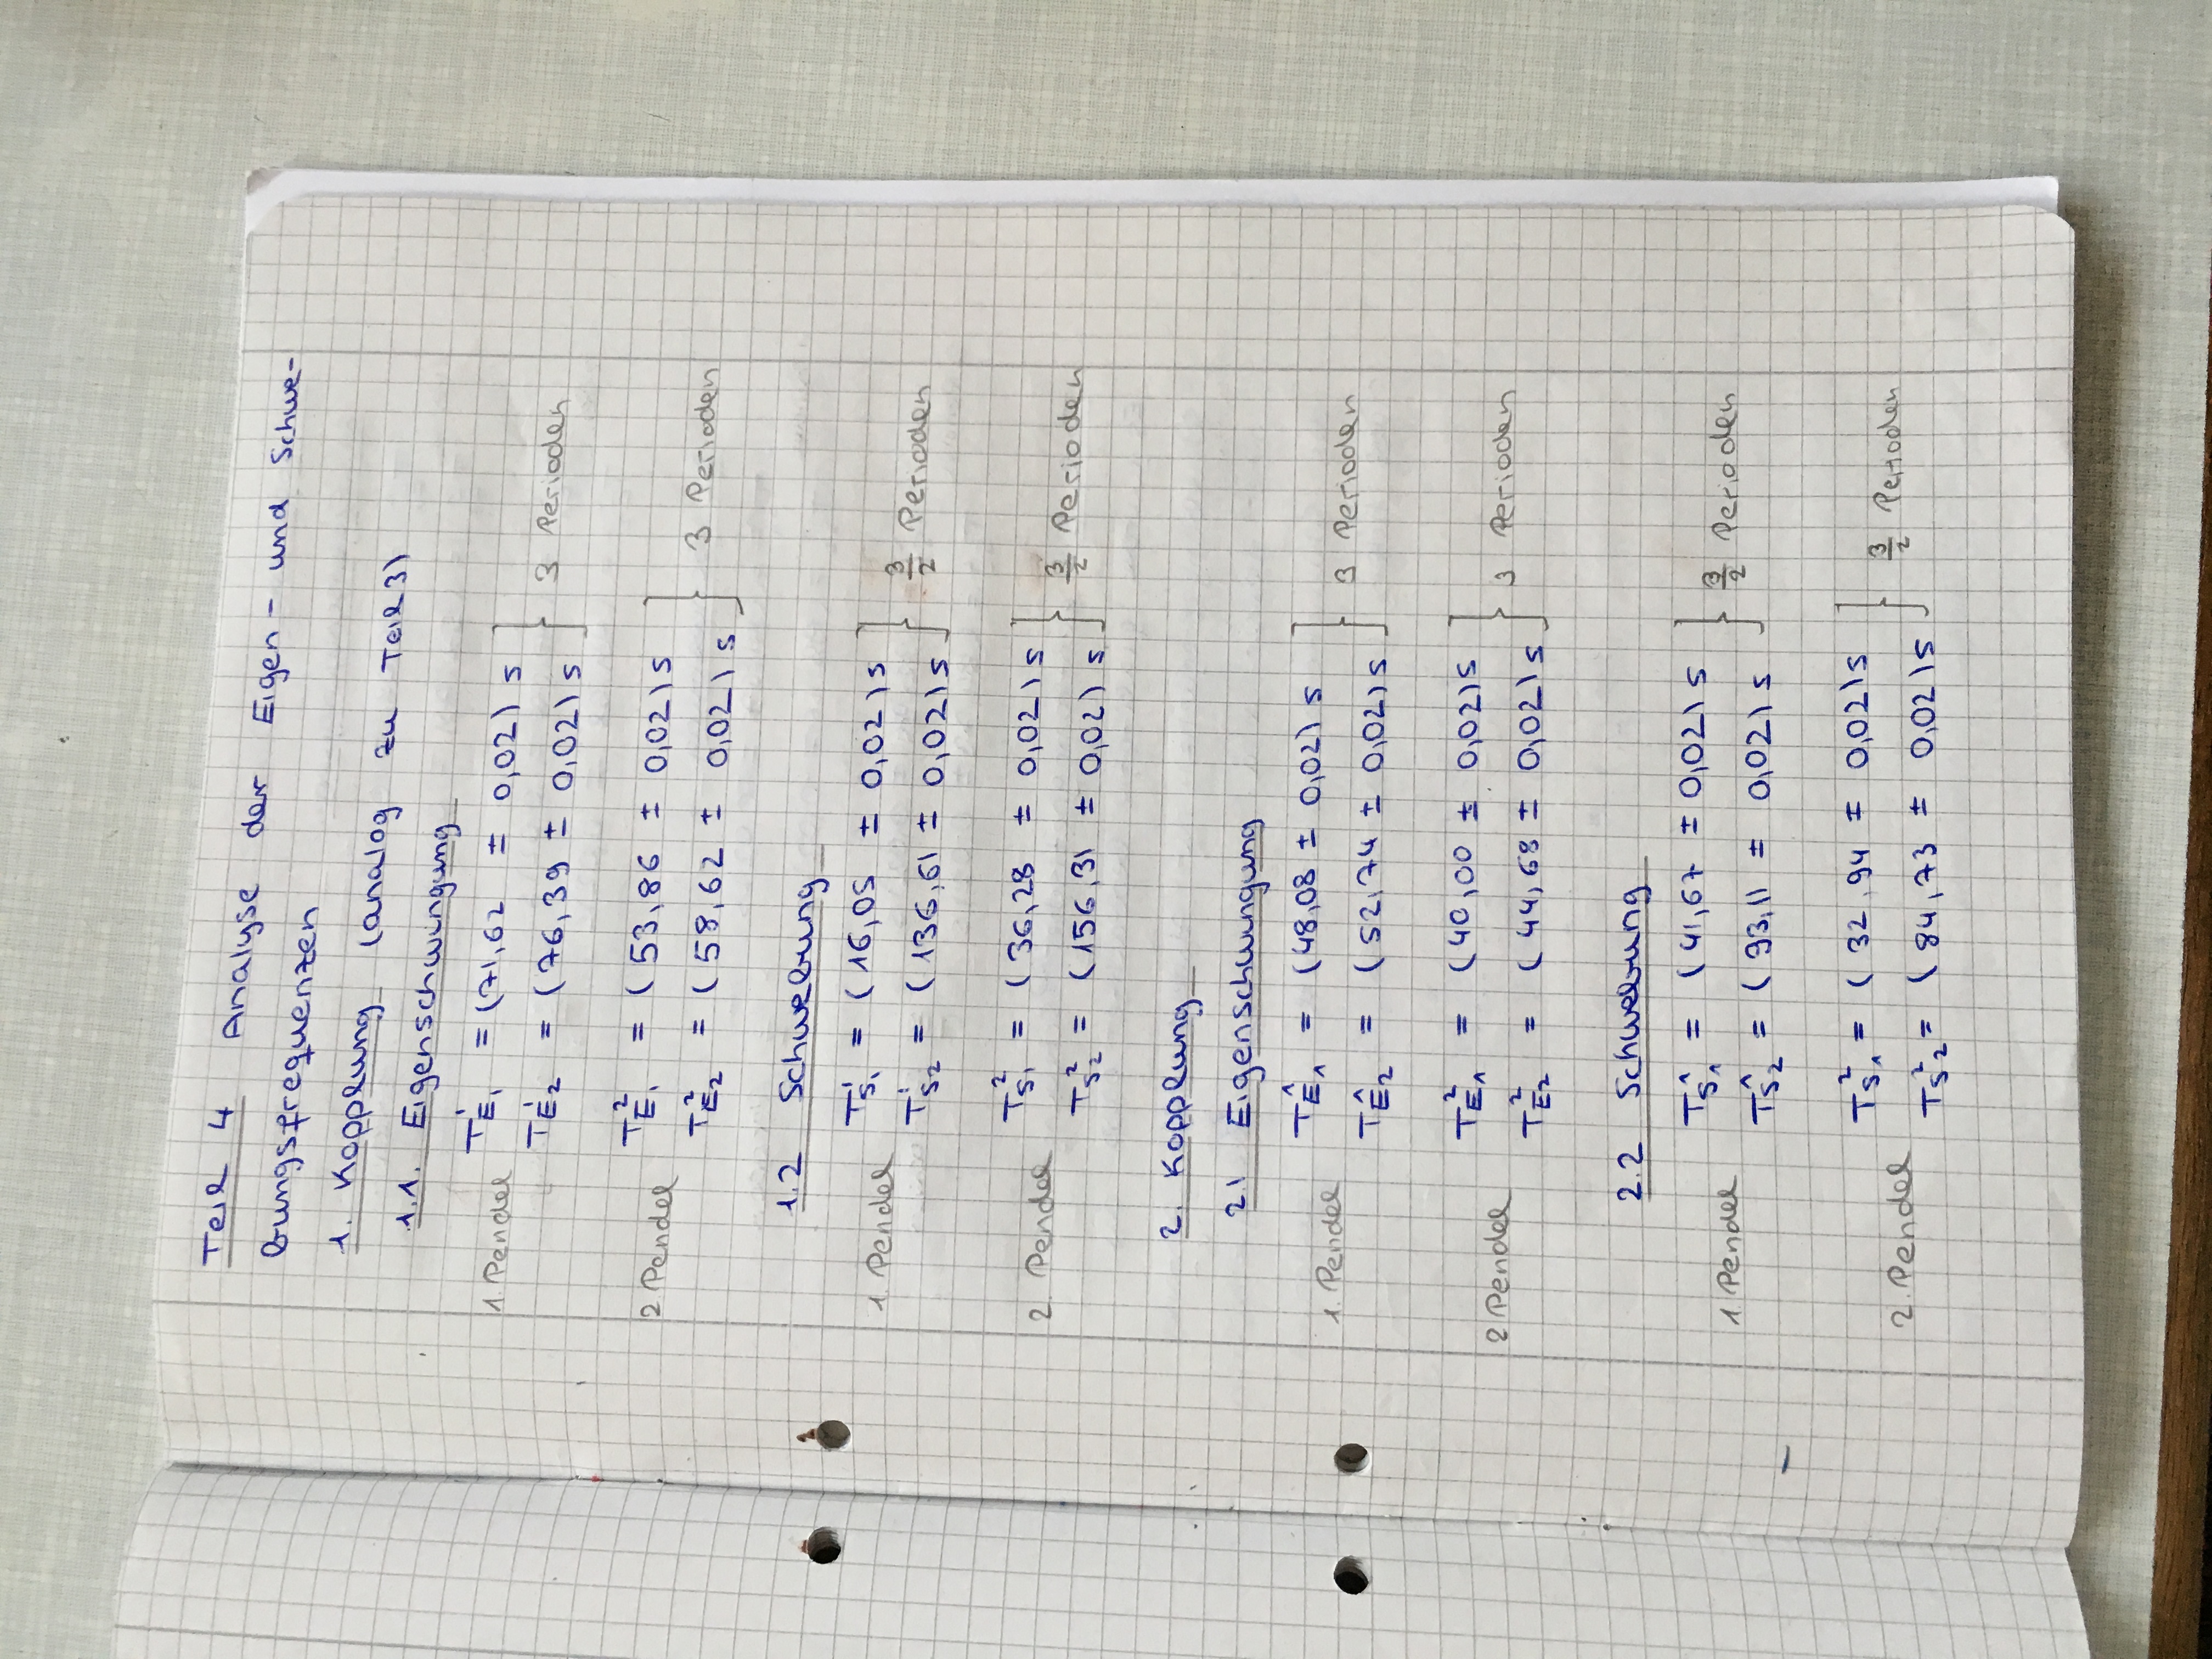 Teil 4 Analyse der Eigen- und Schwe-
bungsfrequenzen
1. Kopplung (analog zu Teil 3)
1.1. Eigenschwingung
1. Pendel T_E₁¹ = (71,62 ± 0,02) s
T_E₂¹ = (76,39 ± 0,02) s } 3 Perioden
2. Pendel T_E₁² = (53,86 ± 0,02) s
T_E₂² = (58,62 ± 0,02) s } 3 Perioden
1.2 Schwebung
1. Pendel T_S₁¹ = (16,05 ± 0,02) s
T_S₂¹ = (136,61 ± 0,02) s } 3/2 Perioden
2. Pendel T_S₁² = (36,28 ± 0,02) s
T_S₂² = (156,31 ± 0,02) s } 3/2 Perioden
2. Kopplung
2.1 Eigenschwingung
1. Pendel T_E₁¹ = (48,08 ± 0,02) s
T_E₂¹ = (52,74 ± 0,02) s } 3 Perioden
2 Pendel T_E₁² = (40,00 ± 0,02) s
T_E₂² = (44,68 ± 0,02) s } 3 Perioden
2.2 Schwebung
1 Pendel T_S₁¹ = (41,67 ± 0,02) s
T_S₂¹ = (93,11 ± 0,02) s } 3/2 Perioden
2. Pendel T_S₁² = (32,94 ± 0,02) s
T_S₂² = (84,73 ± 0,02) s } 3/2 Perioden